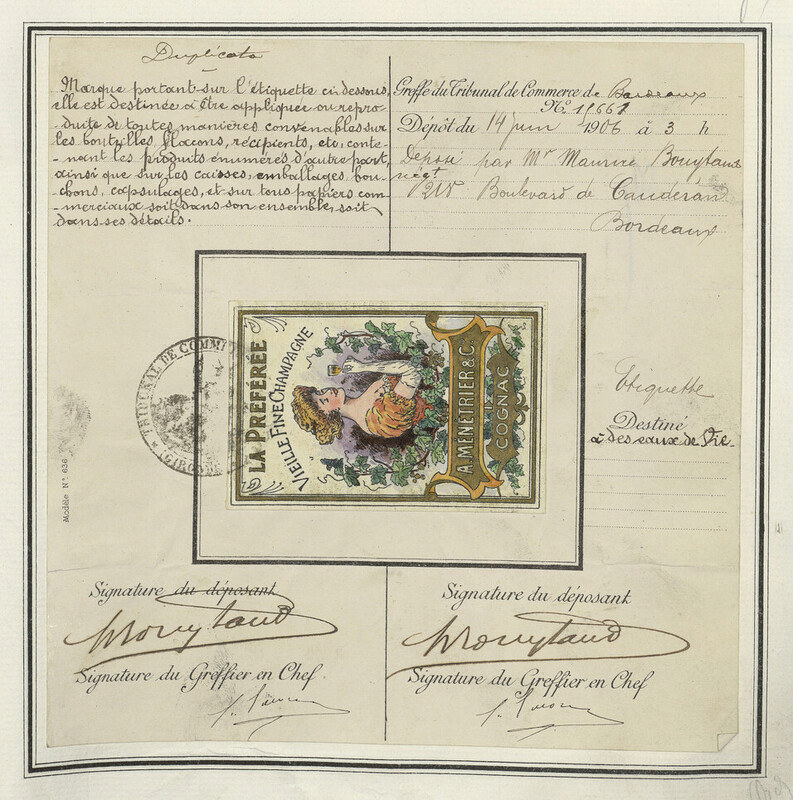 Duplicata
Marque portant sur l'étiquette ci dessous,
elle est destinée à être appliquée ou repro-
duite de toutes manières convenables sur
les bouteilles, flacons, récipients, etc, conte-
nant les produits énumérés d'autre part,
ainsi que sur les caisses, emballages, bou-
-chons, capsulages, et sur tous papiers com-
-merciaux soit dans son ensemble, soit
dans ses détails.
Greffe du Tribunal de Commerce de Bordeaux
N°
Dépôt du 14 juin 1906 à 3 h
Déposé par Mr Maurice
négt
Boulevard de Caudéran
Bordeaux
TRIBUNAL DE COMM
(GIRONDE
LA PRÉFÉRÉE
VIEILLE FINE CHAMPAGNE
A. MENETRIER & C.IE
COGNAC
Étiquette
Destiné
à des eaux de Vie
Modèle N° 636
Signature du déposant
Signature du Greffier en Chef
Signature du déposant
Signature du Greffier en Chef